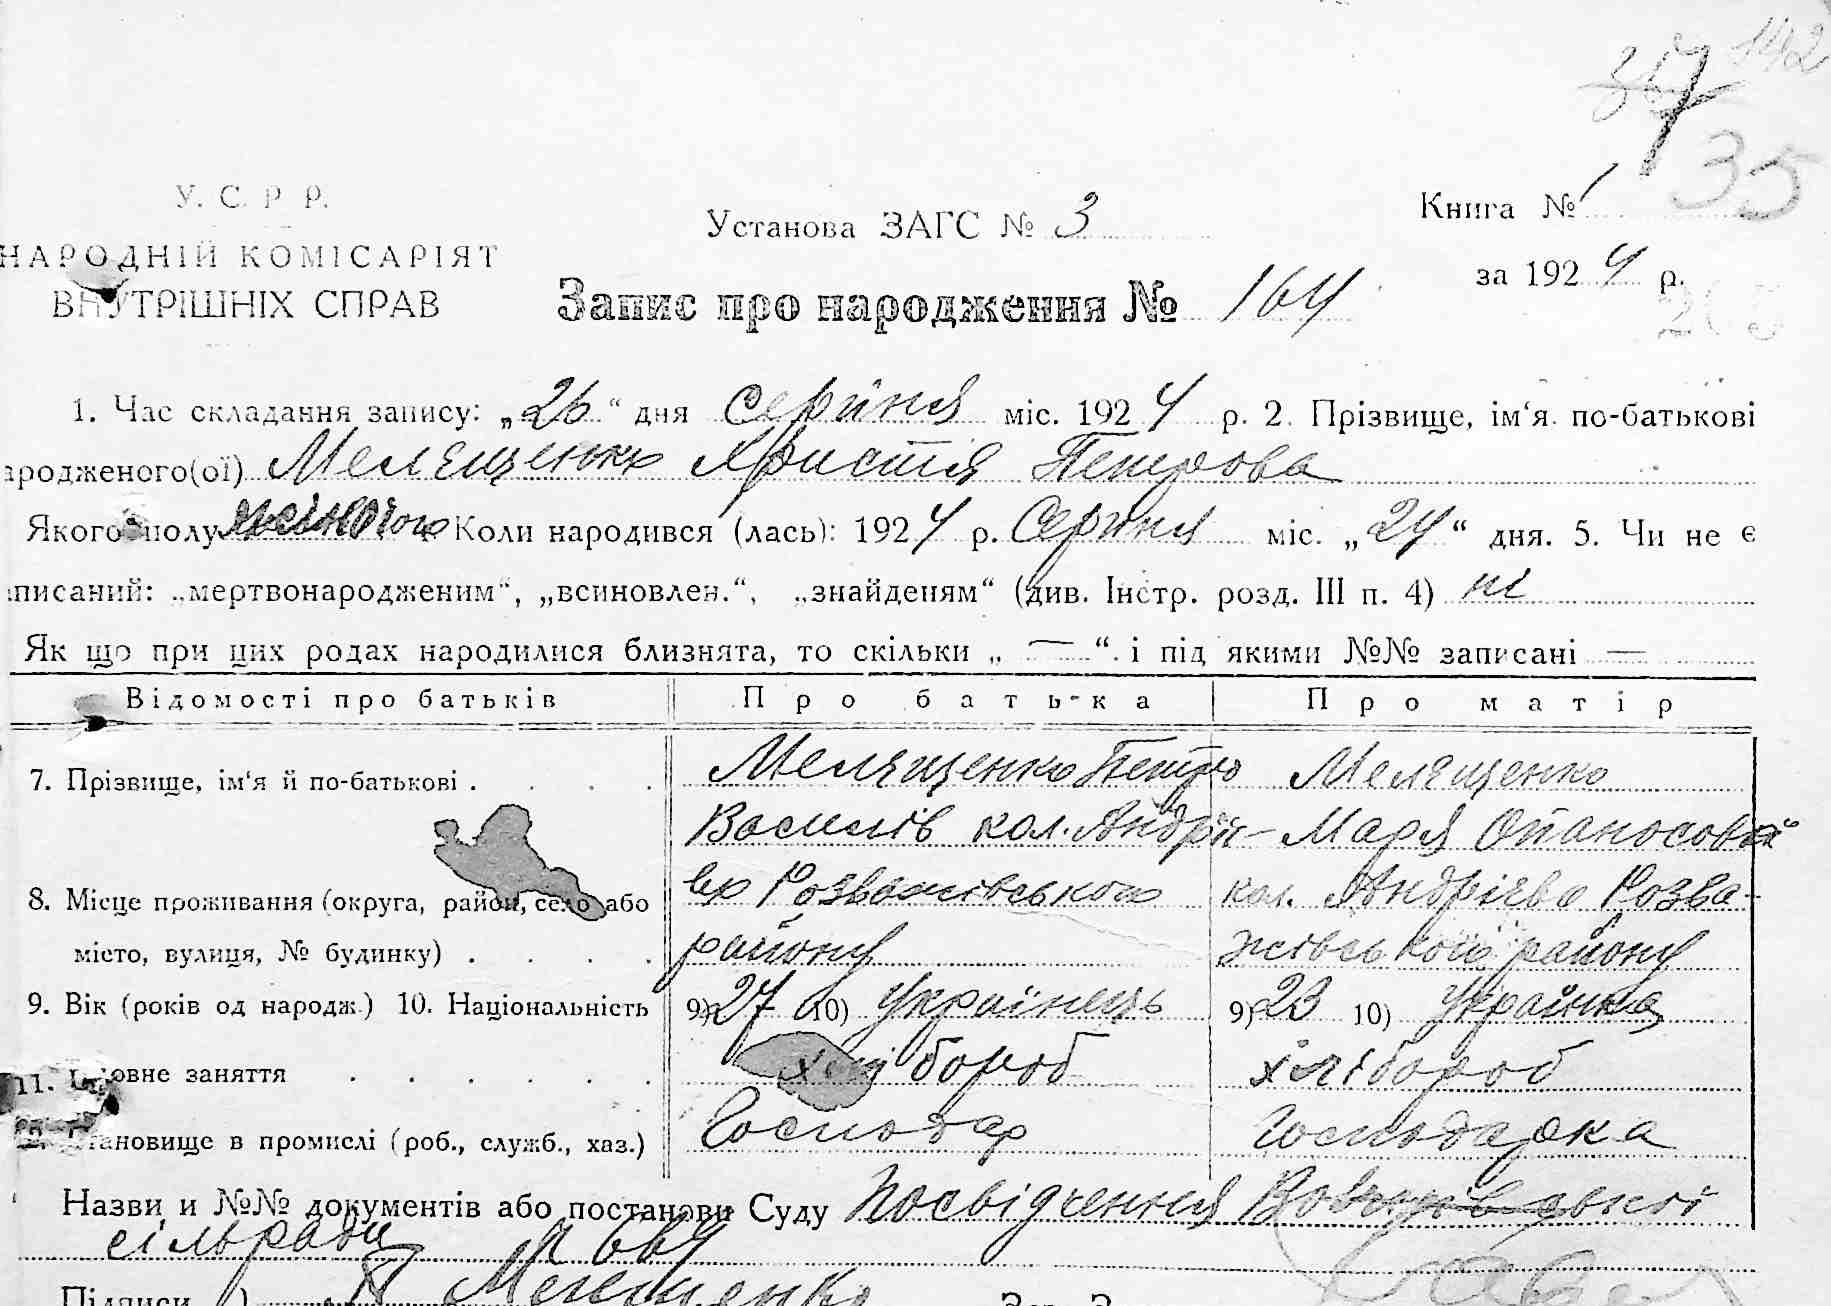 142
35
У. С. Р Р.
НАРОДНІЙ КОМІСАРІЯТ
ВНУТРІШНІХ СПРАВ
Установа ЗАГС № 3
Книга № 1
за 1924 р.
Запис про народження № 164
1. Час складання запису: „26“ дня Серпня міс. 1924 р. 2. Прізвище, ім‘я по-батькові
ародженого(ої) Мелященко Христя Петрова
Якого полу жіночого Коли народився (лась): 1924 р. Серпня міс. „24“ дня. 5. Чи не є
писаний: „мертвонародженим“, „всиновлен.“, „знайденям“ (див. Інстр. розд. III п. 4) ні
Як що при цих родах народилися близнята, то скільки „ — “ і під якими №№ записані —
Відомості про батьків Про батька Про матір
7. Прізвище, ім‘я й по-батькові . . . . Мелященко Петро Мелященко
Василів кол. Андрії- Марія Опаносова
8. Місце проживання (округа, район, село або вх Розважівського кол. Андрієва Розва-
місто, вулиця, № будинку) . . . . району жівського району
9. Вік (років од народж.) 10. Національність 9) 27 10) Українець 9) 23 10) Українка
11. овне заняття . . . . . . хлібороб хлібороб
тановище в промислі (роб., служб., хаз.) Господар Господарка
Назви и №№ документів або постанови Суду Посвідчення
сільради № 664
Підписи